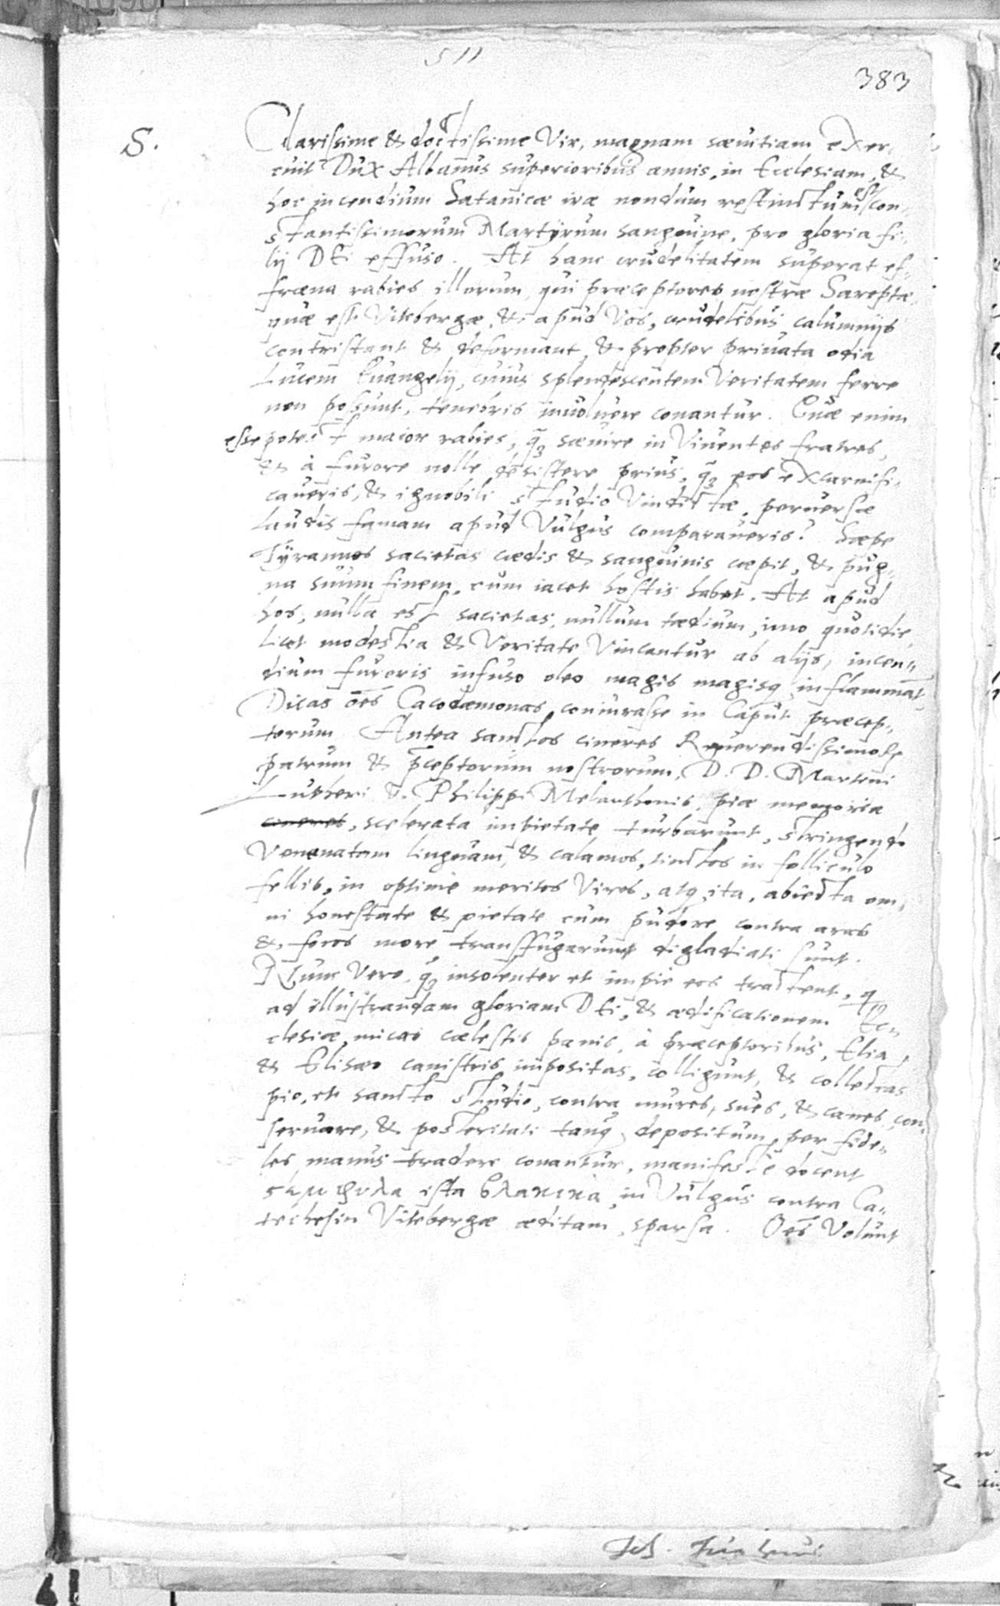 511
383
S.
Clarissime & doctissime Vir, magnam sæuitiam exer-
cuit Dux Albanus superioribus annis, in Ecclesiam, &
hoc incendium Satanicæ iræ nondum restinctum est con-
stantissimorum Martyrum sanguine, pro gloria fi-
lij DEi effuso. At hanc crudelitatem superat ef-
fræna rabies illorum, qui præceptores nostræ Sareptæ
quæ est Vitebergæ, & apud Vos, crudelibus calumnijs
contristant & deformant, & propter priuata odia
Lucem Euangelij, cuius splendescentem Veritatem ferre
non possunt, tenebris inuoluere conantur. Quæ enim
esse potest maior rabies, q̃ sæuire in Viuentes fratres,
& à furore nolle desistere prius, q̃ eos excarnifi-
caueris, & ignobili studio Vindictæ, peruersæ
laudis famam apud Vulgus comparaueris? Sæpe
Tyrannos sacietas cædis & sanguinis cæpit, & pug-
na suum finem, cum iacet hostis habet. At apud
hos, nulla est sacietas, nullum tædium, imo quotidie,
licet modestia & Veritate Vincantur ab alijs, incen-
dium furoris infuso oleo magis magisq; inflammāt.
Dicas oēs Cacodæmonas coniurasse in Caput præcep-
torum. Antea sanctos cineres Reuerendissimorꝝ
patrum & p̄ceptorum nostrorum, D. D. Martini
Lutheri & Philippi Melanthonis, piæ memoriæ
cineres, scelerata impietate turbarunt, stringendo
Venenatam linguam, & calamos, tinctos in folliculo
fellis, in optime meritos Viros, atq; ita, abiecta om-
ni honestate & pietate cum pudore contra aras
& focos more transfugarum digladiati sunt.
Nunc Vero q̃ insolenter et impie eos tractent, q
ad illustrandam gloriam DEi, & ædificationem Ec-
clesiæ, micas cælestis panis, à præceptoribus, Elia,
& Elisæo canistris impositas, colligunt, & collectas
pio, et sancto studio, contra mures, sues, & canes con-
seruare, & posteritati tanq; depositum, per fide-
les manus tradere conantur, manifestè docent
ista βλακικα, in Vulgus contra Ca-
techesin Vitebergæ æditam, sparsa. Oēs Volunt